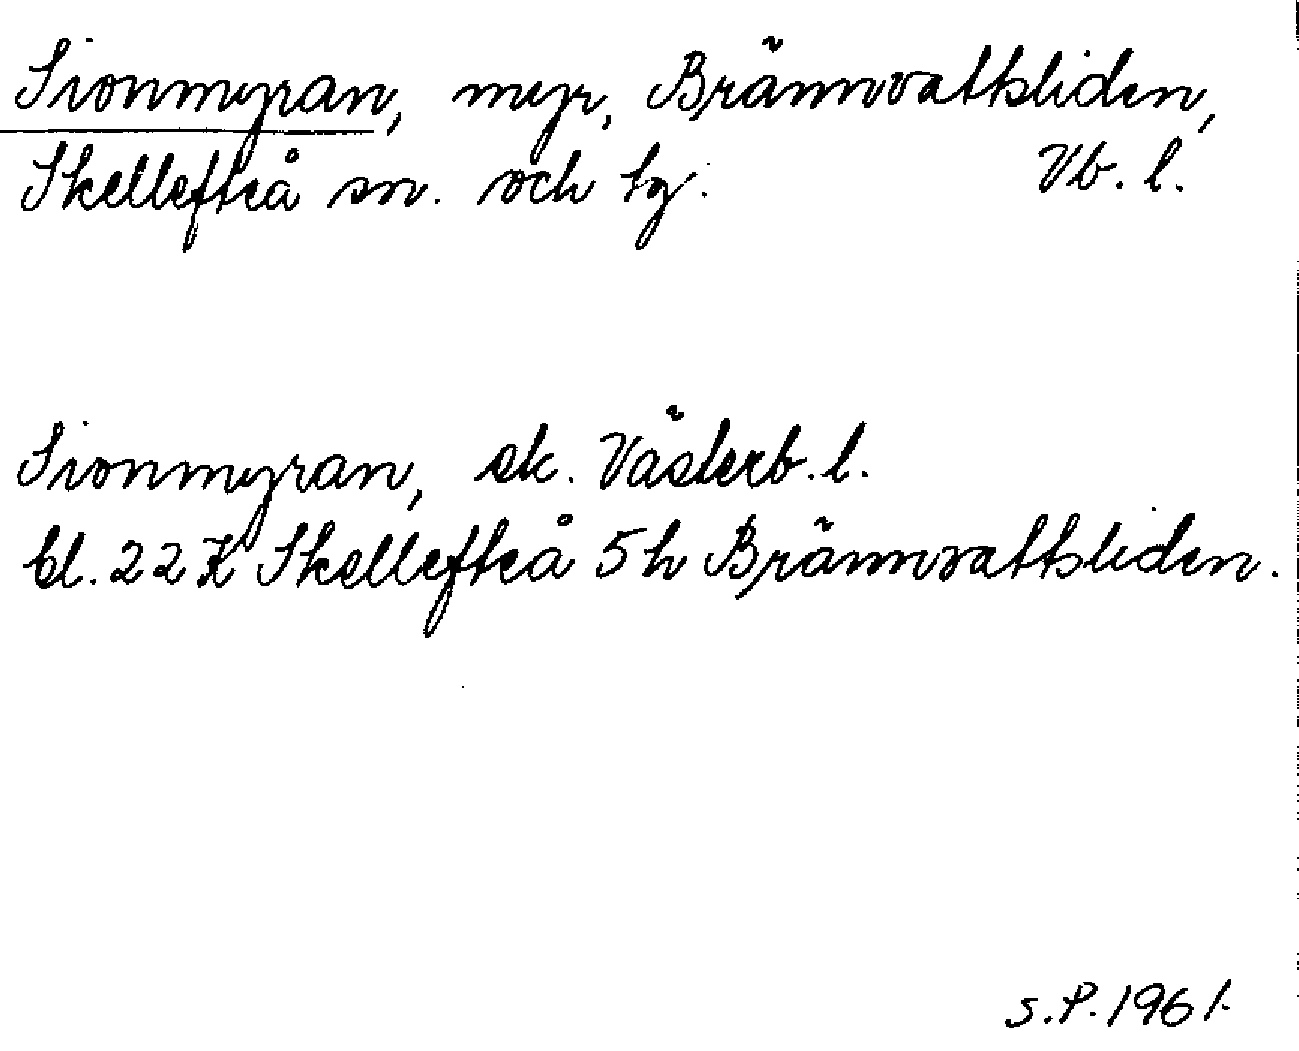 Sionmyran, myr, Brännvattsliden,
Skellefteå sn. och tg. Vb. l.
Sionmyran, ek. Västerb. l.
bl. 22 K Skellefteå 5 h Brännvattsliden.
S. P. 1961.